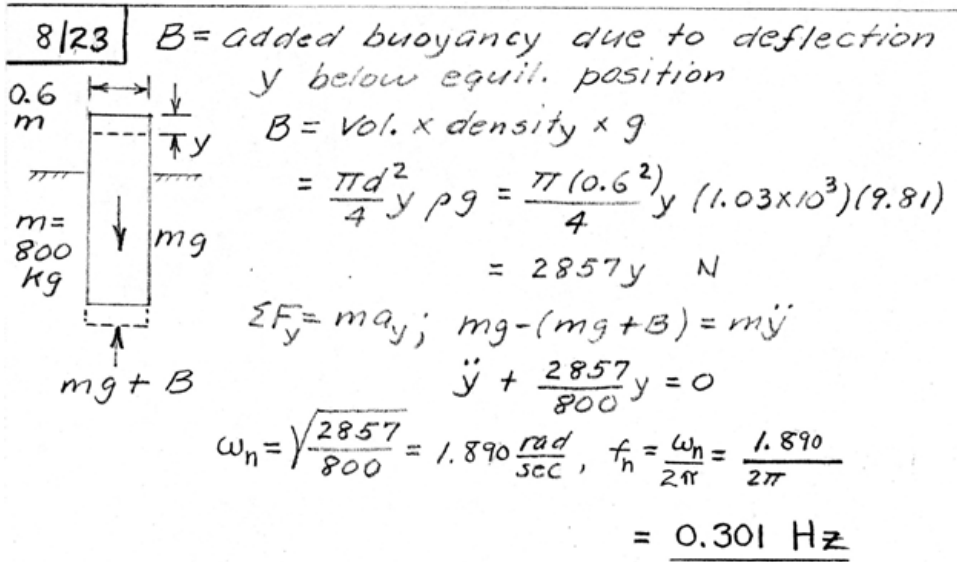 8/23 B = added buoyancy due to deflection
y below equil. position
0.6
m
y
B = Vol. × density × g
= πd²/4 y ρg = π(0.6²)/4 y (1.03×10³)(9.81)
m=
800
kg
mg
= 2857y N
ΣF_y = ma_y; mg-(mg+B) = mÿ
mg + B
ÿ + 2857/800 y = 0
ω_n = √(2857/800) = 1.890 rad/sec, f_n = ω_n/2π = 1.890/2π
= 0.301 Hz